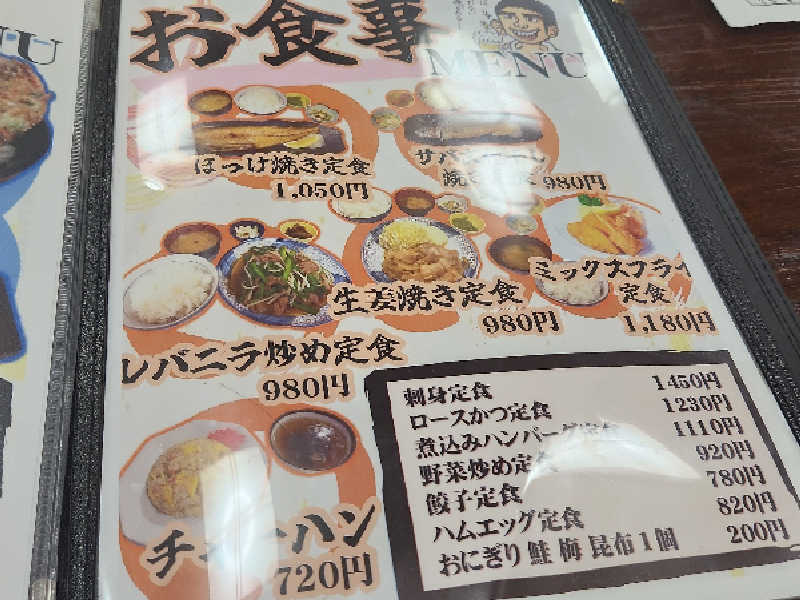 お食事
MENU
ほっけ焼き定食
1,050円
焼き
980円
生姜焼き定食
980円
ミックスフライ
定食
1,180円
レバニラ炒め定食
980円
720円
刺身定食 1450円
ロースかつ定食 1230円
煮込みハンバーグ定食 1110円
野菜炒め定食 920円
餃子定食 780円
ハムエッグ定食 820円
おにぎり 鮭 梅 昆布 1個 200円